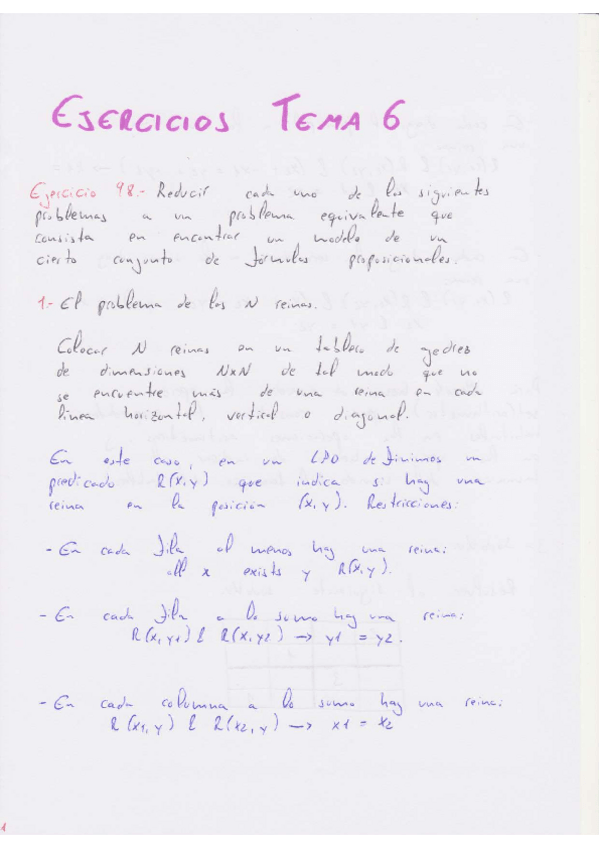 EJERCICIOS TEMA 6
Ejercicio 98.- Reducir cada uno de los siguientes
problemas a un problema equivalente que
consista en encontrar un modelo de un
cierto conjunto de fórmulas proposicionales.
1.- El problema de las N reinas.
Colocar N reinas en un tablero de ajedrez
de dimensiones NxN de tal modo que no
se encuentre más de una reina en cada
línea horizontal, vertical o diagonal.
En este caso, en un LPO definimos un
predicado R(x,y) que indica si hay una
reina en la posición (x,y). Restricciones:
- En cada fila al menos hay una reina:
all x exists y R(x,y).
- En cada fila a lo sumo hay una reina:
R(x,y1) & R(x,y2) → y1 = y2.
- En cada columna a lo sumo hay una reina:
R(x1,y) & R(x2,y) → x1 = x2
1